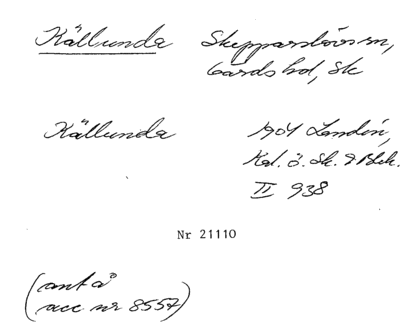 Källunda Skepparslövs sn,
Gärds hd, Sk
Källunda 1901 Landin,
Kal. ö. Sk. & Blek.
II 938
Nr 21110
(ant å
acc nr 8557)